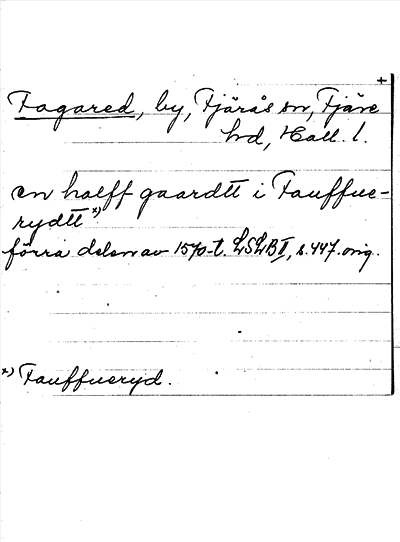 +
Fagared, by, Fjärås sn, Fjäre
hd, Hall. l.
en halff gaardtt i Fauffue-
rydtt x)
förra delen av 1570-t. LSLB II, s. 447. orig.
x) Fauffueryd.